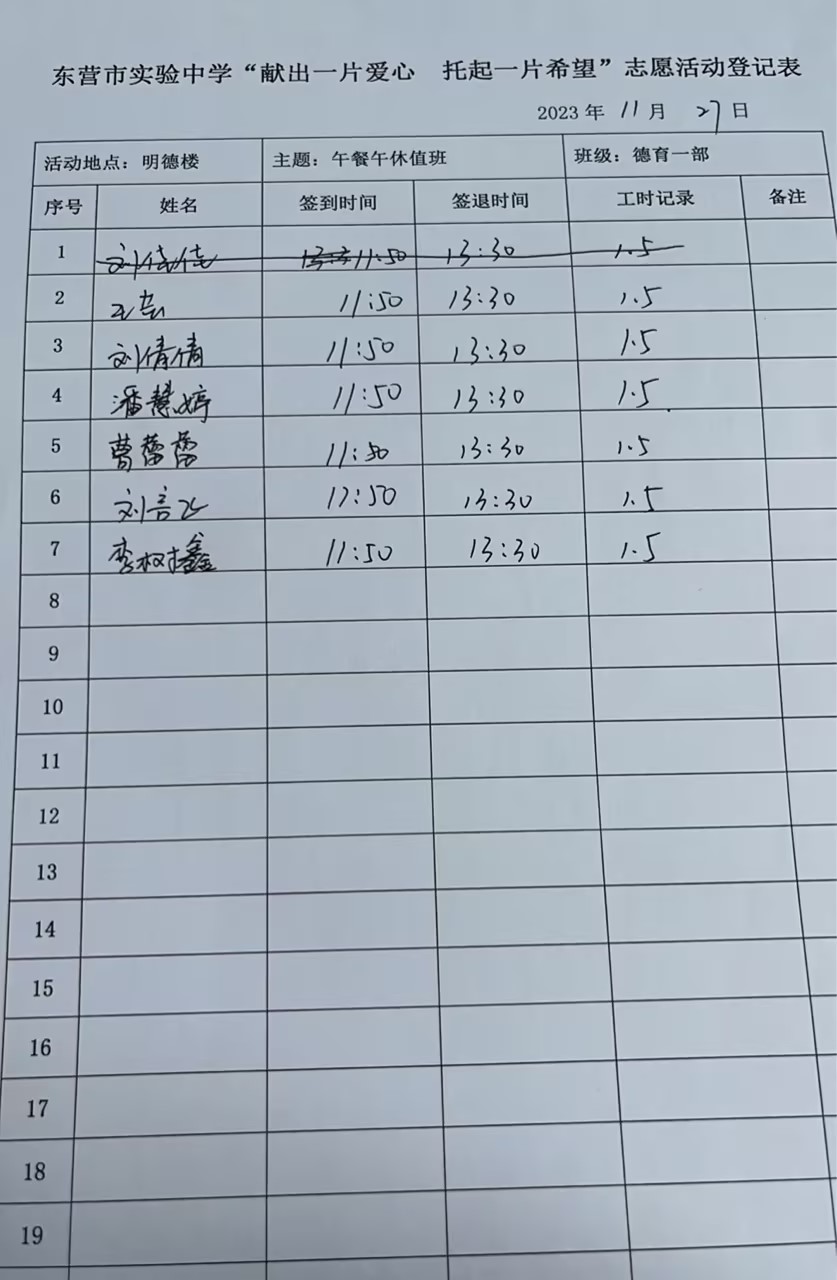 东营市实验中学“献出一片爱心 托起一片希望”志愿活动登记表
2023 年 11 月 27 日
活动地点：明德楼 主题：午餐午休值班 班级：德育一部
序号 姓名 签到时间 签退时间 工时记录 备注
1 11:50 13:30 1.5
2 11:50 13:30 1.5
3 刘倩倩 11:50 13:30 1.5
4 潘慧婷 11:50 13:30 1.5
5 曹蕾蕾 11:50 13:30 1.5
6 刘言飞 11:50 13:30 1.5
7 11:50 13:30 1.5
8
9
10
11
12
13
14
15
16
17
18
19